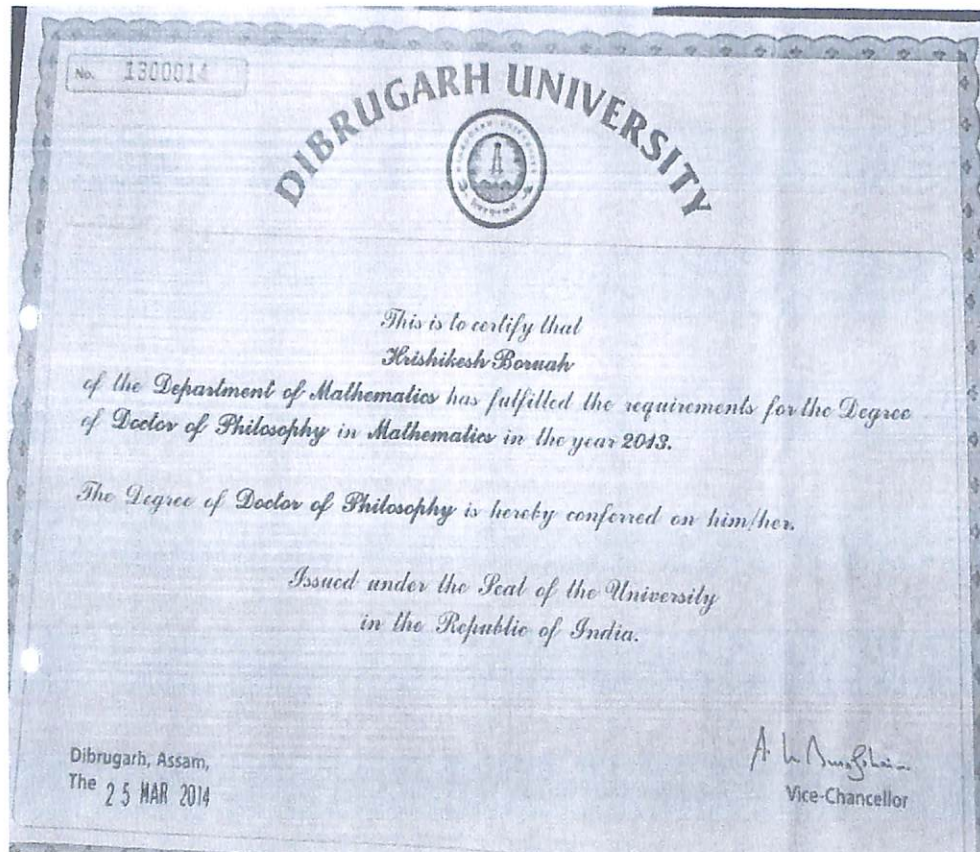 No. 1300014
DIBRUGARH UNIVERSITY
This is to certify that
Hrishikesh Boruah
of the Department of Mathematics has fulfilled the requirements for the Degree
of Doctor of Philosophy in Mathematics in the year 2013.
The Degree of Doctor of Philosophy is hereby conferred on him/her.
Issued under the Seal of the University
in the Republic of India.
Dibrugarh, Assam,
The 25 MAR 2014
Vice-Chancellor